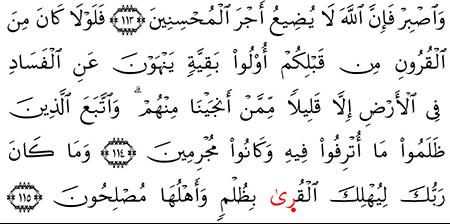 وَٱصۡبِرۡ فَإِنَّ ٱللَّهَ لَا يُضِيعُ أَجۡرَ ٱلۡمُحۡسِنِينَ ١١٣ فَلَوۡلَا كَانَ مِنَ
ٱلۡقُرُونِ مِن قَبۡلِكُمۡ أُوْلُواْ بَقِيَّةٖ يَنۡهَوۡنَ عَنِ ٱلۡفَسَادِ
فِي ٱلۡأَرۡضِ إِلَّا قَلِيلٗا مِّمَّنۡ أَنجَيۡنَا مِنۡهُمۡۗ وَٱتَّبَعَ ٱلَّذِينَ
ظَلَمُواْ مَا أُتۡرِفُواْ فِيهِ وَكَانُواْ مُجۡرِمِينَ ١١٤ وَمَا كَانَ
رَبُّكَ لِيُهۡلِكَ ٱلۡقُرَىٰ بِظُلۡمٖ وَأَهۡلُهَا مُصۡلِحُونَ ١١٥